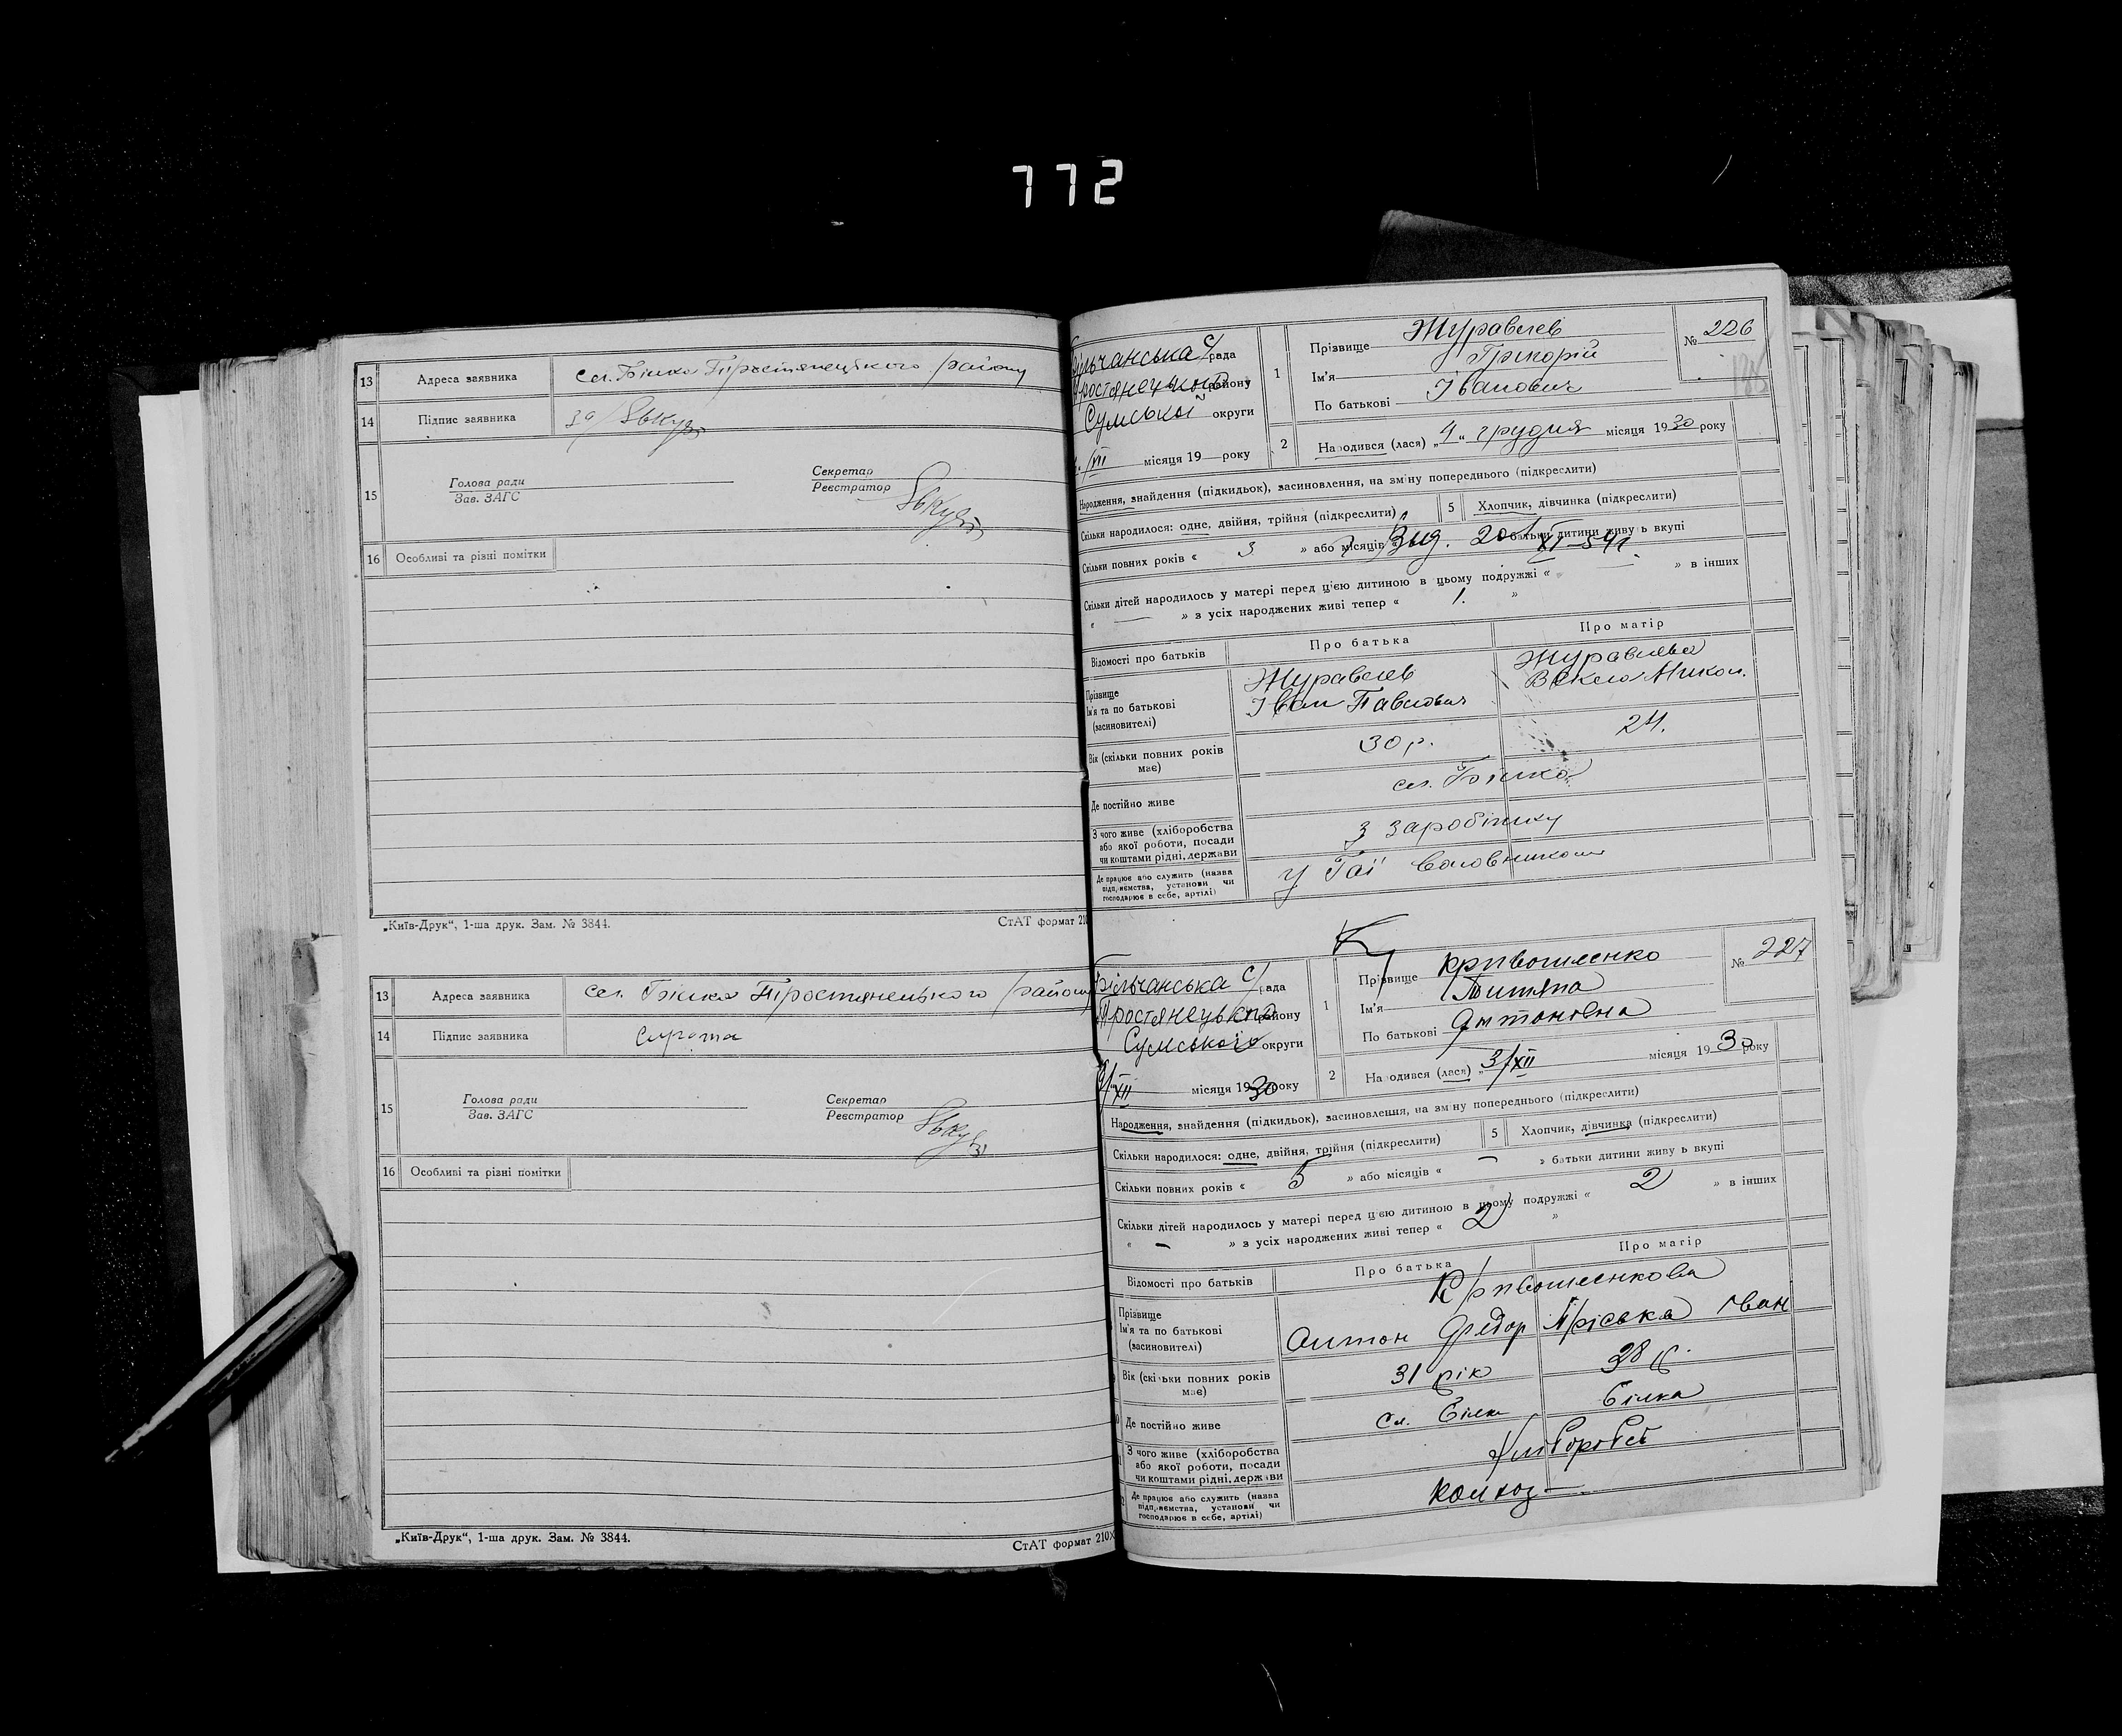 772
13 Адреса заявника сел. Білка Тростянецького району
14 Підпис заявника за
15 Голова ради Секретар
Зав. ЗАГС Реєстратор
16 Особливі та різні помітки
„Київ-Друк“, 1-ша друк. Зам. № 3844. СтАТ формат 210
13 Адреса заявника сел. Білка Тростянецького району
14 Підпис заявника Сирота
15 Голова ради Секретар
Зав. ЗАГС Реєстратор
16 Особливі та різні помітки
„Київ-Друк“, 1-ша друк. Зам. № 3844. СтАТ формат 210×
Більчанська с/рада
Тростянецького району
Сумської округи
/XII місяця 19 року
1 Прізвище Журавлев № 226
Ім'я Григорій
По батькові Іванович
2 Народився (лася) „4“ грудня місяця 1930 року
Народження, знайдення (підкидьок), засиновлення, на зміну попереднього (підкреслити)
Скільки народилося: одне, двійня, трійня (підкреслити) 5 Хлопчик, дівчинка (підкреслити)
Скільки повних років « 3 » або місяців « » батьки дитини живуть вкупі
Скільки дітей народилось у матері перед цією дитиною в цьому подружжі « — » в інших
« — » з усіх народжених живі тепер « 1. »
Відомості про батьків Про батька Про матір
Прізвище Журавлев Журавлева
Ім'я та по батькові Іван Павлович Векла Микол.
(засиновителі)
Вік (скільки повних років має) 30 р. 24.
Де постійно живе сел. Білка
З чого живе (хліборобства або якої роботи, посади чи коштами рідні, держави з заробітку
Де працює або служить (назва підприємства, установи чи господарює в себе, артілі) у Гаї
К
Більчанська с/рада
Тростянецького району
Сумського округи
9/XII місяця 1930 року
1 Прізвище Кривошиенко № 227
Ім'я Титяна
По батькові Антоновна
2 Народився (лася) „3/XII місяця 1930 року
Народження, знайдення (підкидьок), засиновлення, на зміну попереднього (підкреслити)
Скільки народилося: одне, двійня, трійня (підкреслити) 5 Хлопчик, дівчинка (підкреслити)
Скільки повних років « 5 » або місяців « — » батьки дитини живуть вкупі
Скільки дітей народилось у матері перед цією дитиною в цьому подружжі « 2 » в інших
« — » з усіх народжених живі тепер « 2 »
Відомості про батьків Про батька Про матір
Прізвище Кривошиенкова
Ім'я та по батькові Антон Федор Пріська Іван
(засиновителі)
Вік (скільки повних років має) 31 рік 28 р.
Де постійно живе сл. Білка Білка
З чого живе (хліборобства або якої роботи, посади чи коштами рідні, держави Хлібороб
Де працює або служить (назва підприємства, установи чи господарює в себе, артілі) колхоз —